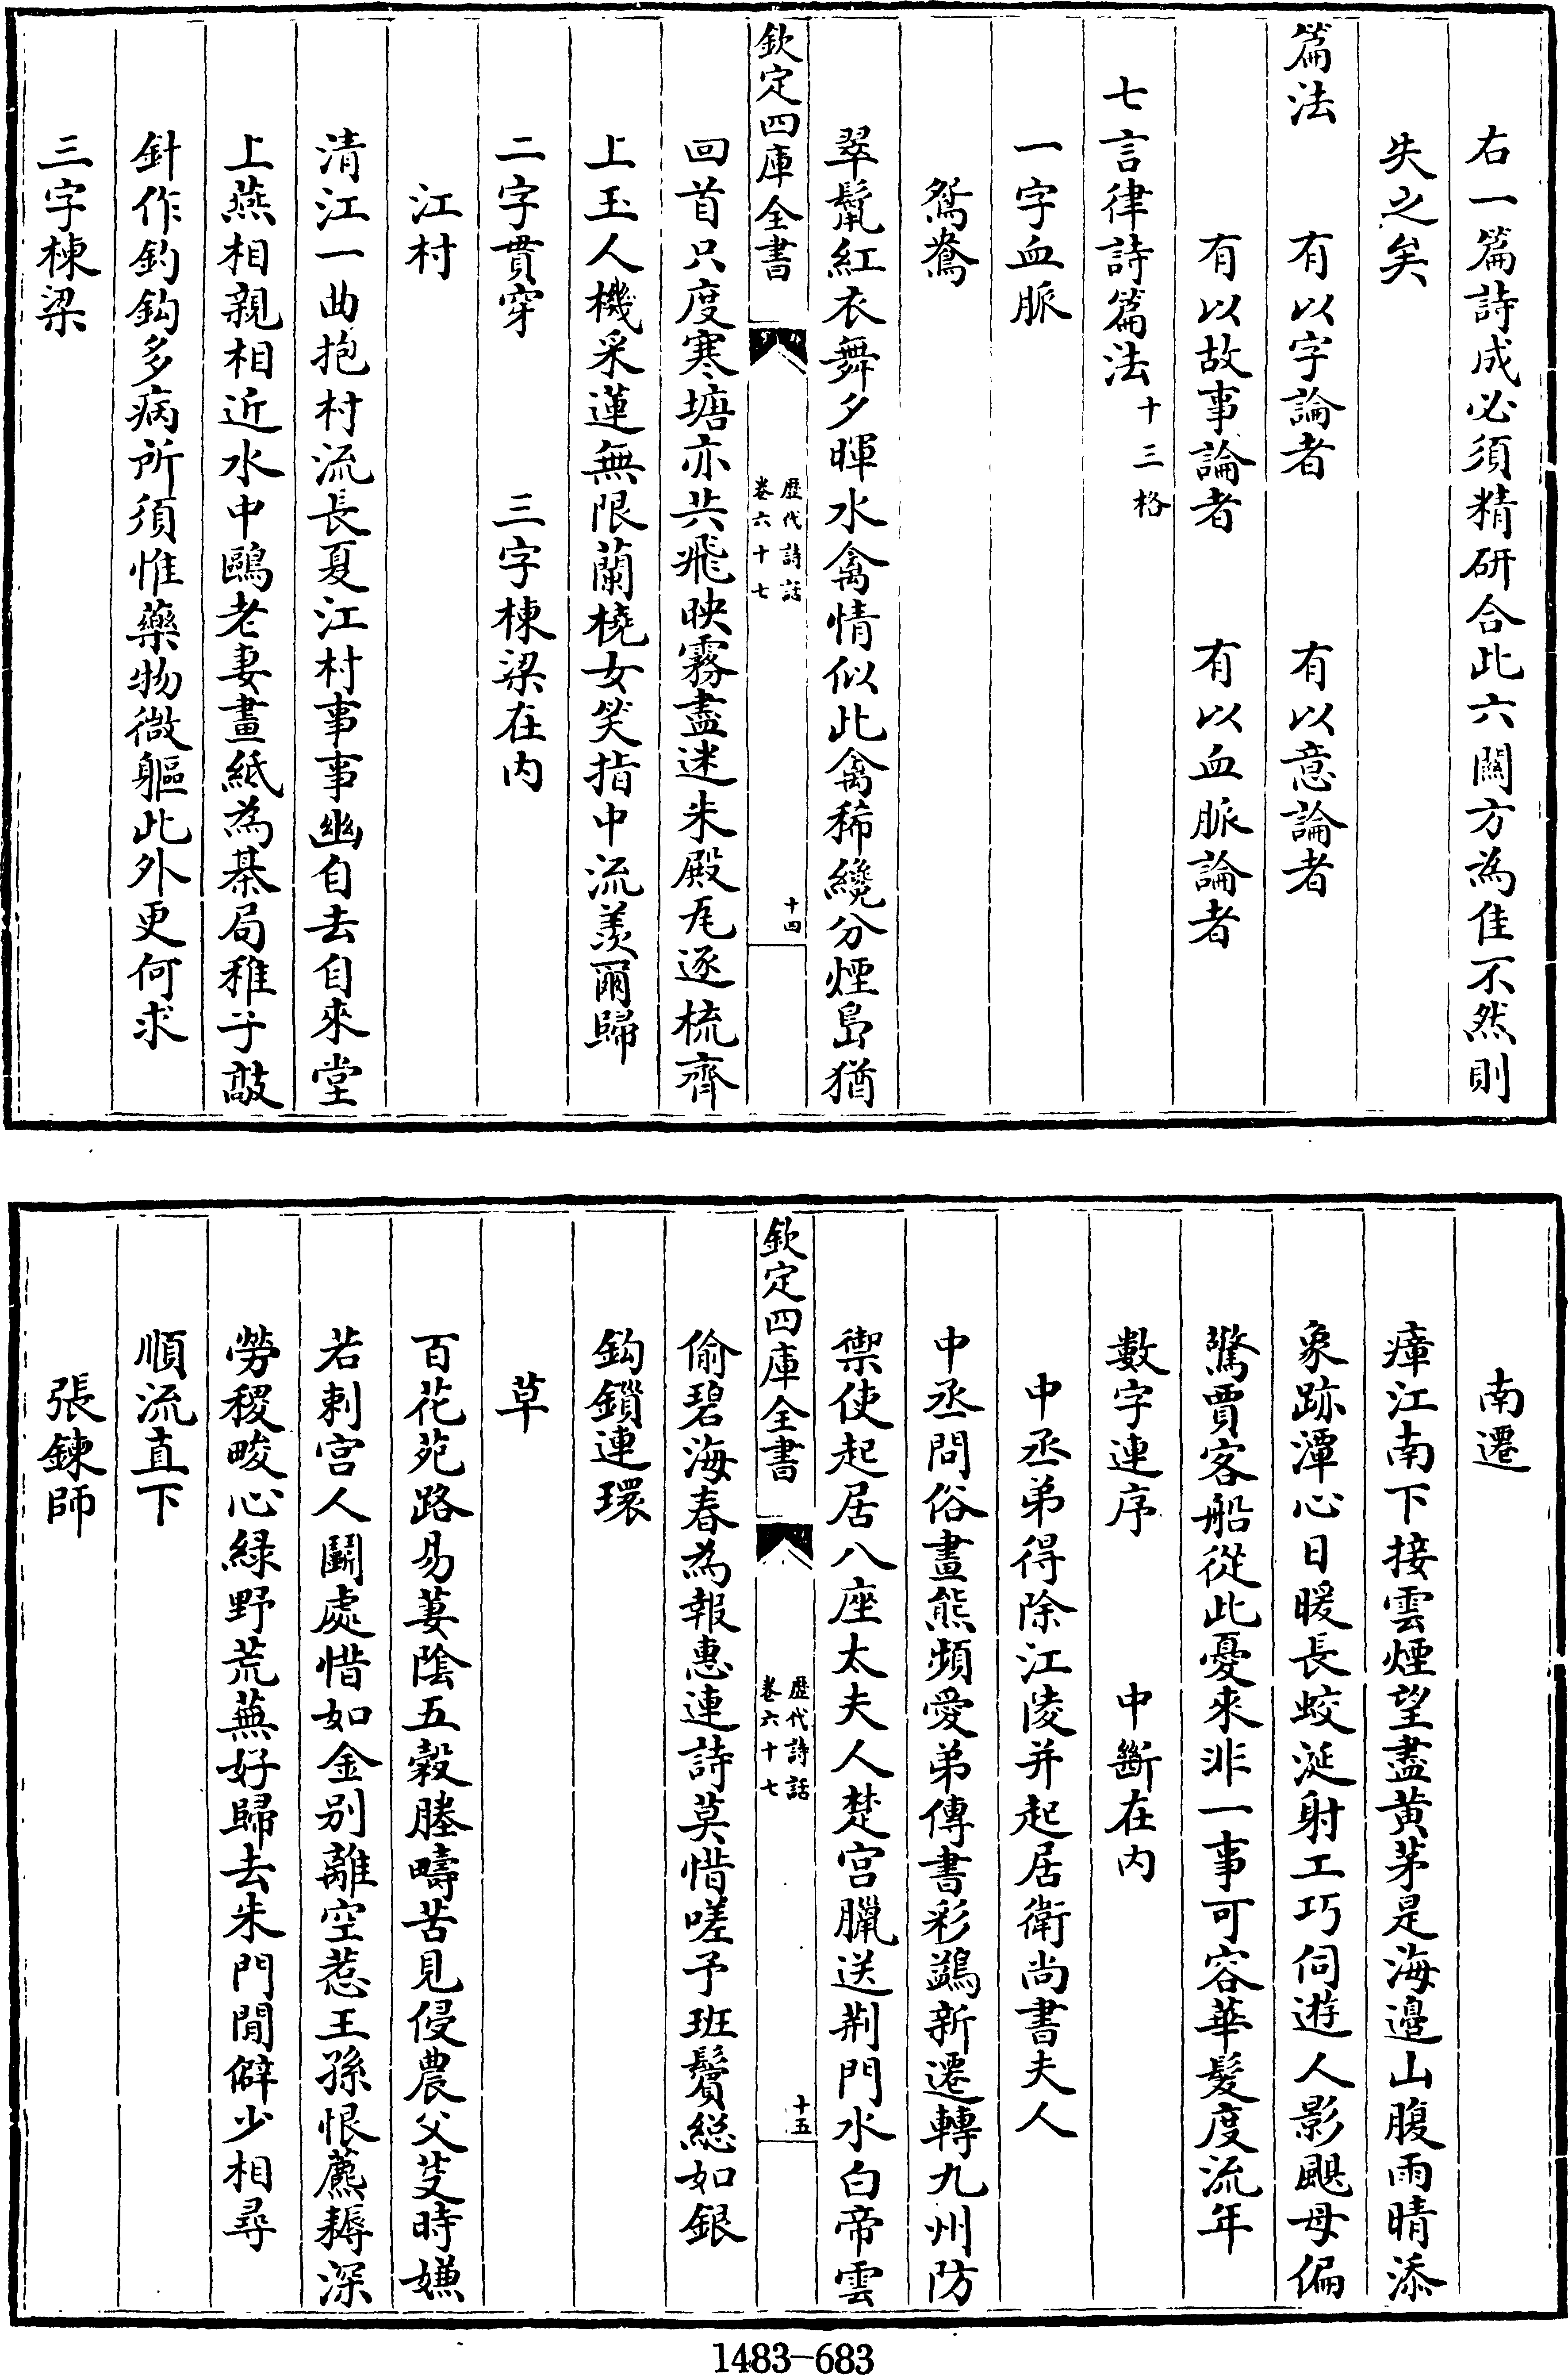 右一篇詩成必須精研合此六關方為佳不然則
失之矣
篇法　有以字論者　有以意論者
有以故事論者　有以血脈論者
七言律詩篇法十三格
一字血脈
鴛鴦
翠鬛紅衣舞夕暉水禽情似此禽稀纔分煙島猶
欽定四庫全書
歴代詩話
卷六十七
十四
回首只度寒塘亦共飛映霧盡迷朱殿瓦逐梳齊
上玉人機采蓮無限蘭橈女笑指中流羨爾歸
二字貫穿　三字棟梁在内
江村
清江一曲抱村流長夏江村事事幽自去自來堂
上燕相親相近水中鷗老妻畫紙為棊局稚子敲
針作釣鈎多病所須惟藥物微軀此外更何求
三字棟梁
南遷
瘴江南下接雲煙望盡黄茅是海邉山腹雨晴添
象跡潭心日暖長蛟涎射工巧伺遊人影颶母偏
驚賈客船從此憂來非一事可容華髮度流年
數字連序　中斷在内
中丞弟得除江陵并起居衛尚書夫人
中丞問俗畫熊頻愛弟傳書彩鷁新遷轉九州防
禦使起居八座太夫人楚宫臘送荆門水白帝雲
欽定四庫全書
歴代詩話
卷六十七
十五
偷碧海春為報惠連詩莫惜嗟予班鬢總如銀
鈎鎖連環
草
百花苑路易萋陰五穀塍疇苦見侵農父芟時嫌
若刺宫人鬬處惜如金别離空惹王孫恨藨耨深
勞稷畯心緑野荒蕪好歸去朱門閒僻少相尋
順流直下
張鍊師
1483-683